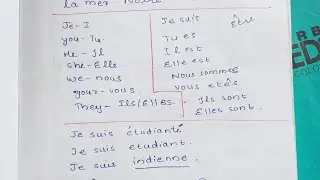 la mer Notre
Je - I
you - Tu
He - Il
She - Elle
we - nous
your - vous.
They - Ils/Elles.
Je suis Être
Tu es
Il est
Elle est
Nous sommes
vous etés
Ils sont
Elles sont.
Je suis étudianté
Je suis etudiant.
Je suis indienne.